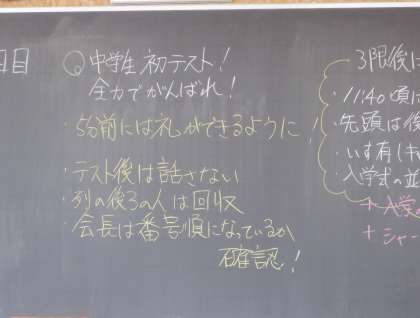 日目
中学生 初テスト!
全力でがんばれ!
・5分前には礼ができるように!
・テスト後は話さない
・列の後ろの人は回収
・会長は番号順になっているか
確認!
3限後に
・11:40頃に
・先頭は後
・いす有(キ
・入学式の並
+入学
+シャー